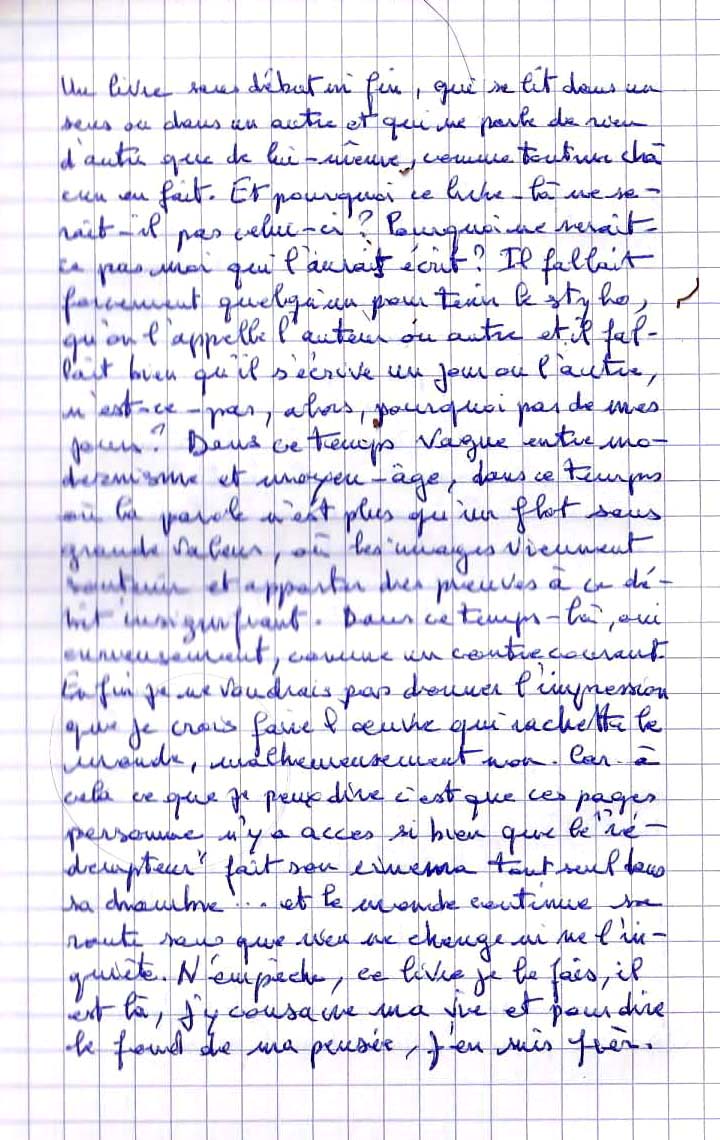 Un livre sans début ni fin, qui se lit dans un
sens ou dans un autre et qui ne parle de rien
d'autre que de lui-même, comme tout un cha
cun en fait. Et pourquoi ce livre-là ne se-
rait-il pas celui-ci ? Pourquoi ne serait-
ce pas moi qui l'aurais écrit ? Il fallait
forcement quelqu'un pour tenir le stylo,
qu'on l'appelle l'auteur ou autre et il fal-
lait bien qu'il s'écrive un jour ou l'autre,
n'est-ce-pas, alors, pourquoi pas de mes
jours ? Dans ce temps vague entre mo-
dernisme et moyen-âge, dans ce temps
où la parole n'est plus qu'un flot sans
grande valeur, où les images viennent
soutenir et apporter des preuves à ce dé-
bit insignifiant. Dans ce temps-là, oui
curieusement, comme un contre courant.
Enfin je ne voudrais pas donner l'impression
que je crois faire l'œuvre qui rachette le
monde, malheureusement non. Car à
cela ce que je peux dire c'est que ces pages
personne n'y a acces si bien que le "ré-
dempteur" fait son cinema tout seul dans
sa chambre... et le monde continue sa
route sans que rien ne change ni ne l'in-
quiète. N'empèche, ce livre je le fais, il
est là, j'y consacre ma vie et pour dire
le fond de ma pensée, j'en suis fier.